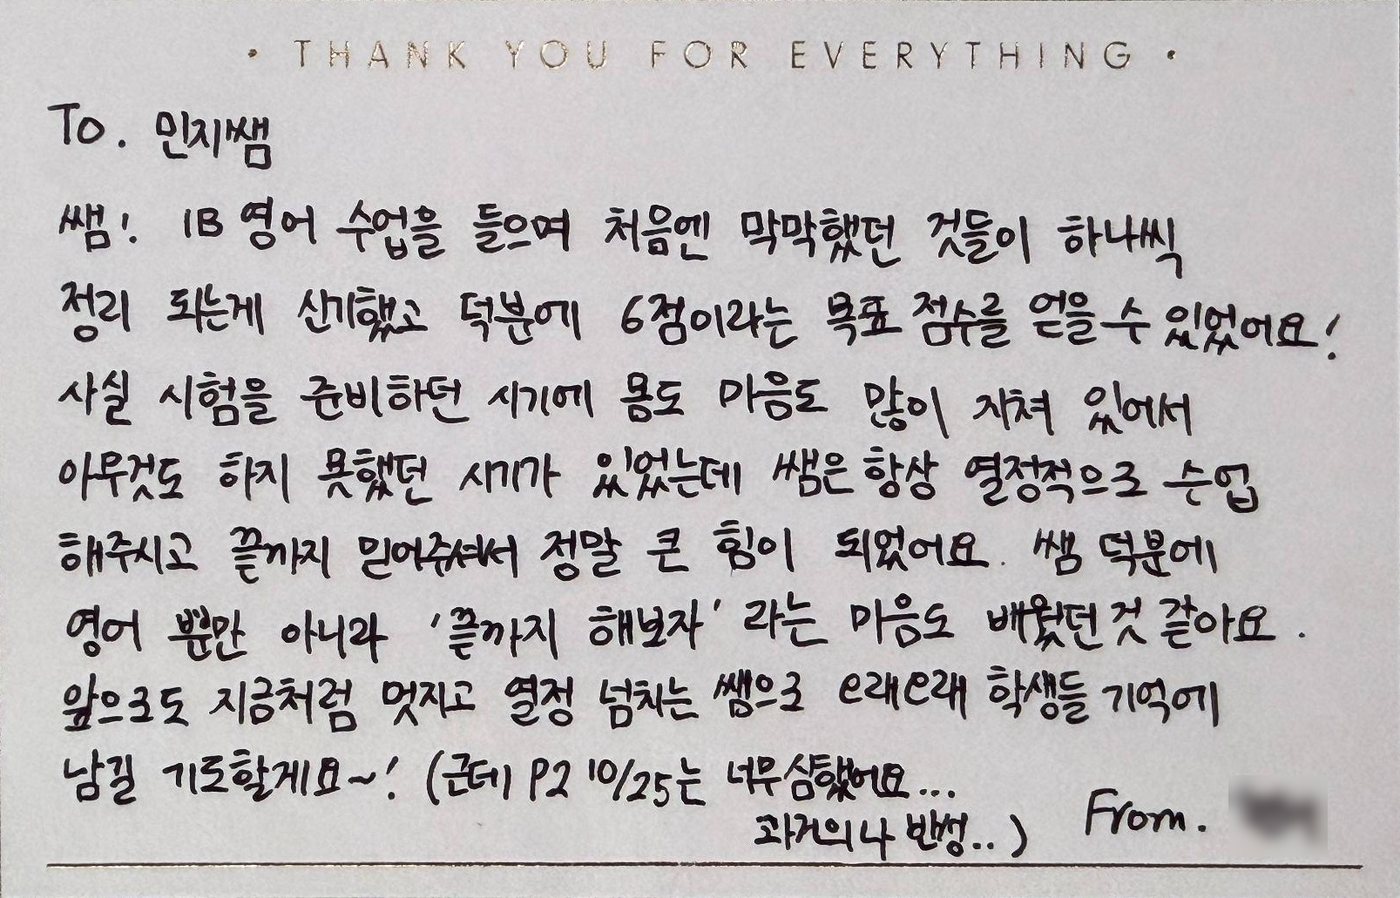 • THANK YOU FOR EVERYTHING •
To. 민지쌤
쌤! IB 영어 수업을 들으며 처음엔 막막했던 것들이 하나씩
정리 되는게 신기했고 덕분에 6점이라는 목표 점수를 얻을 수 있었어요!
사실 시험을 준비하던 시기에 몸도 마음도 많이 지쳐 있어서
아무것도 하지 못했던 시기가 있었는데 쌤은 항상 열정적으로 수업
해주시고 끝까지 믿어주셔서 정말 큰 힘이 되었어요. 쌤 덕분에
영어 뿐만 아니라 '끝까지 해보자' 라는 마음도 배웠던 것 같아요.
앞으로도 지금처럼 멋지고 열정 넘치는 쌤으로 오래오래 학생들 기억에
남길 기도할게요~! (근데 P2 10/25는 너무 심했어요...
과거의 나 반성..)
From.